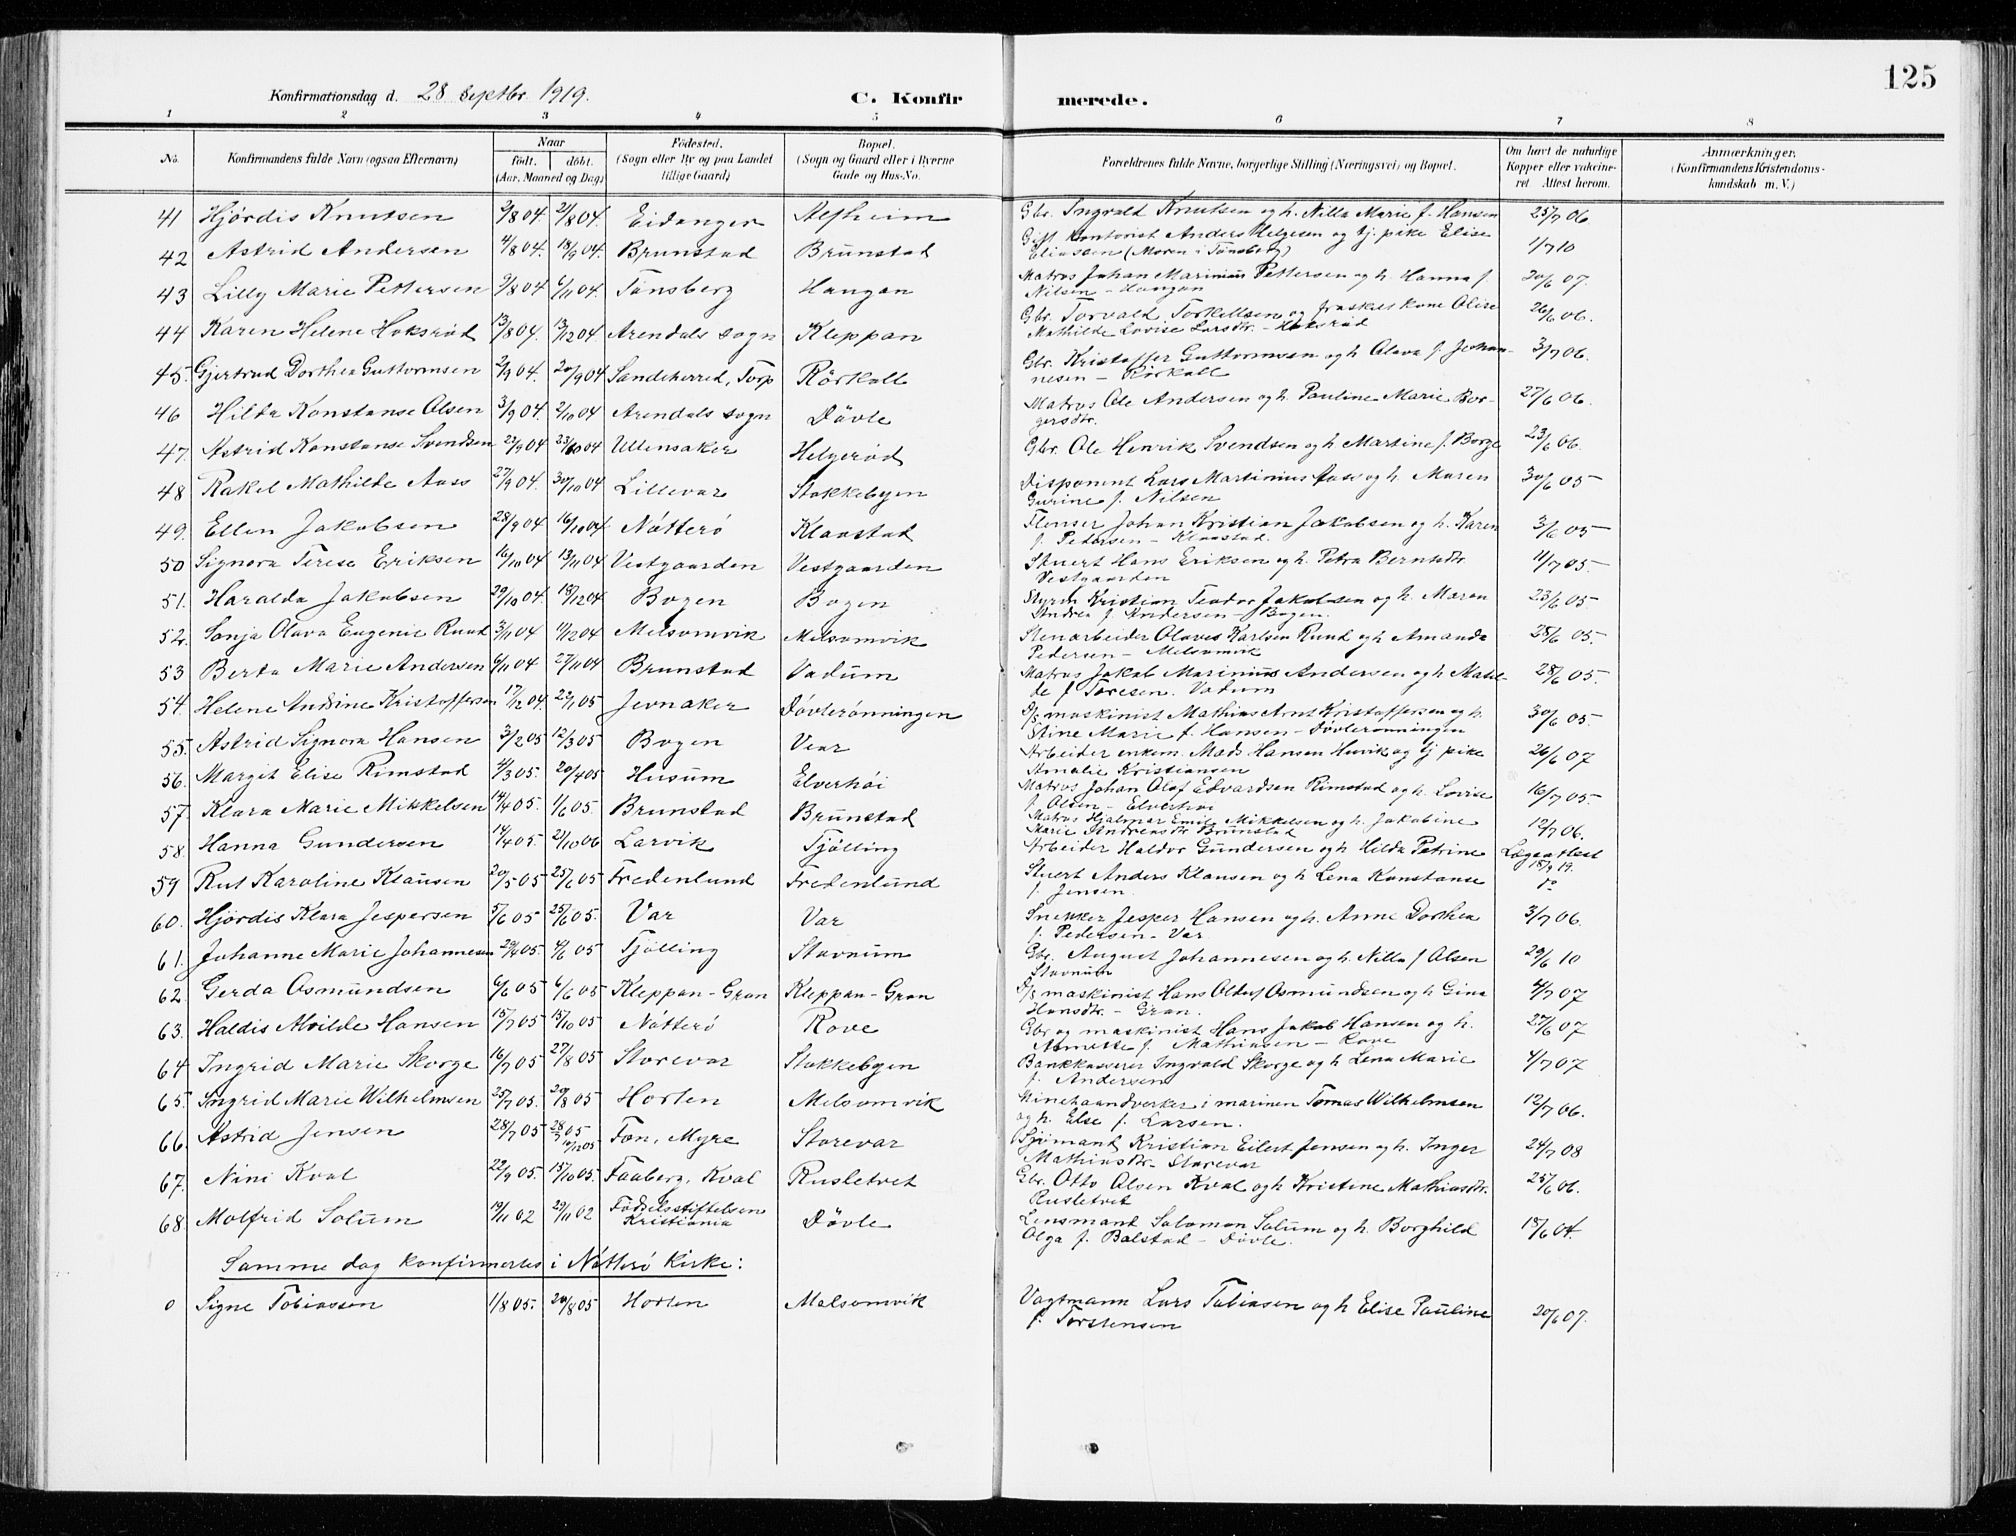 125
Konfirmationsdag d. 28 Septbr. 1919.
C. Konfirmerede.
1 2 3 4 5 6 7 8
No. Konfirmandens fulde Navn (ogsaa Efternavn) Naar født. døbt. (Aar, Maaned og Dag) Fødested. (Sogn eller By og paa Landet tillige Gaard) Bopæl. (Sogn og Gaard eller i Byerne Gade og Hus-No. Forældrenes fulde Navne, borgerlige Stilling (Næringsvei) og Bopæl. Om havt de naturlige Kopper eller vakcineret. Attest herom. Anmærkninger. (Konfirmandens Kristendomskundskab m. V.)
41 Hjördis Knutsen 2/8 04 21/8 04. Eidanger Alfheim Gbr. Ingvald Knutsen og h. Nilla Marie f. Hansen 25/7 06
42 Astrid Andersen 4/8 04. 18/9 04. Brunstad Brunstad Gift kontorist Anders Helgesen og tj. pike Elise
Eliassen (Moren i Tönsberg) 1/7 10
43 Lilly Marie Pettersen 9/8 04 6/11 04. Tönsberg Haugan Matros Johan Marinius Pettersen og h. Hanna f.
Nilsen - Haugan 20/6 07.
44 Karen Helene Hoksröd 13/8 04. 13/12 04 Arendals sogn Kleppan Gbr. Torvald Torkellsen og fraskilt kone Olise
Mathilde Lovise Larsdtr. - Hoksröd 26/6 06.
45. Gjertrud Dorthea Guttormsen 2/9 04. 20/9 04 Sandeherred, Torp Rörkoll Gbr. Kristoffer Guttormsen og h. Olava f. Johan-
nesen - Rörkoll 3/7 06.
46 Hilda Konstanse Olsen 3/9 04. 2/10 04 Arendals sogn Dövle Matros Ole Andersen og h. Pauline Marie Bor-
gersdtr. 27/6 06.
47. Astrid Konstanse Svendsen 23/9 04 23/10 04 Ullensaker Helgeröd Gbr. Ole Henrik Svendsen og h. Martine f. Borge 23/6 06.
48 Rakel Mathilde Aass 27/9 04. 30/10 04 Lillevar Stokkebyen Disponent Lars Martinius Aass og h. Maren
Gurine f. Nilsen 30/6 05
49. Ellen Jakobsen 28/9 04 16/10 04 Nötterö Klaastad Flenser Johan Kristian Jakobsen og h. Karen
f. Pedersen - Klaastad. 3/6 05
50 Signora Terese Eriksen 16/10 04 13/11 04 Vestgaarden Vestgaarden Stuert Hans Eriksen og h. Petra Berntsdtr.
Vestgaarden 11/7 05
51. Haralda Jakobsen 29/10 04. 18/12 04 Bogen Bogen Styrm Kristian Teodor Jakobsen og h. Maren
Andrea f. Andersen - Bogen 23/6 05
52. Sonja Olava Eugenie Ruud 3/11 04 11/12 04 Melsomvik Melsomvik Stenarbeider Olaves Karlsen Ruud og h. Amanda
Pedersen - Melsomvik 28/6 05.
53 Berta Marie Andersen 6/11 04 27/11 04 Brunstad Vadum Matros Jakob Marinius Andersen og h. Matil-
de f. Toresen. Vadum 28/6 05.
54. Helene Andrine Kristoffersen 17/12 04. 22/1 05 Jevnaker Dövlerönningen D/s maskinist Mathias Arnt Kristoffersen og h.
Stine Marie f. Hansen - Dövlerönningen 30/6 05.
55. Astrid Signora Hansen 3/2 05 12/3 05 Bogen Vear Arbeider enkem. Mads Hansen Huvik og tj. pike
Amalie Kristiansen 26/6 07
56. Margit Elise Rimstad 4/3 05. 20/4 05 Husum Elverhöi Matros Johan Olaf Edvardsen Rimstad og h. Lovise
f. Olsen - Elverhöi 16/7 05.
57. Klara Marie Mikkelsen 14/4 05. 1/6 05 Brunstad Brunstad Matros Hjalmar Emil Mikkelsen og h. Jakobine
Marie Andreasdtr. Brunstad 12/7 06.
58. Hanna Gundersen 14/4 05. 21/10 06 Larvik Tjölling Arbeider Haldor Gundersen og h. Hilda Petrine Lægeattest 18/9 19.
59 Rut Karoline Klausen 20/5 05 25/6 05 Fredenlund Fredenlund Stuert Anders Klausen og h Lena Konstanse
f. Jensen. do
60. Hjördis Klara Jespersen 5/6 05 25/6 05. Var Var Snekker Jesper Hansen og h. Anne Dorthea
f. Pedersen - Var 3/7 06.
61. Johanne Marie Johannesen 29/4 05 4/6 05 Tjölling Stavnum Gbr. August Johannesen og h. Nilla f Olsen
Stavnum 29/6 10
62. Gerda Osmundsen 6/6 05 6/6 05 Kleppan - Gran Kleppan - Gran D/s maskinist Hans Oluf Osmundsen og h Gina
Hansdtr. - Gran. 4/7 07
63. Haldis Alvilde Hansen 15/7 05 15/10 05 Nötterö Rove Gbr og maskinist Hans Jakob Hansen og h.
Annette f. Mathiasen - Rove 27/6 07
64 Ingrid Marie Skorge 16/7 05 27/8 05 Storevar Stokkebyen Bankkasserer Ingvald Skorge og h. Lena Marie
f. Andersen 4/7 07
65. Ingrid Marie Wilhelmsen 25/7 05. 20/8 05 Horten Melsomvik Minehaandverker i marinen Tomas Wilhelmsen
og h. Else f. Larsen. 12/7 06.
66. Astrid Jensen 28/7 05 28/7 05 10/12 05 Fon, Myre Storevar Sjömand Kristian Eilert Jensen og h. Inger
Mathiasdtr. Storevar 24/7 08
67. Nini Kval 22/9 05. 15/10 05. Faaberg, Kval Rusletvet Gbr. Otto Olsen Kval og h Kristine Mathiasdtr.
Rusletvet 25/6 06.
68. Molfrid Solum 19/11 02 29/11 02 Födselsstiftelsen
Kristiania Dövle Lensmand Salomon Solum og h. Borghild
Olga f. Balstad - Dövle. 18/6 04.
Samme dag konfirmertes i Nötterö kirke:
0 Signe Tobiassen 1/8 05. 20/8 05 Horten Melsomvik Vagtmann Lars Tobiasen og h Elise Pauline
f. Torstensen 20/6 07.